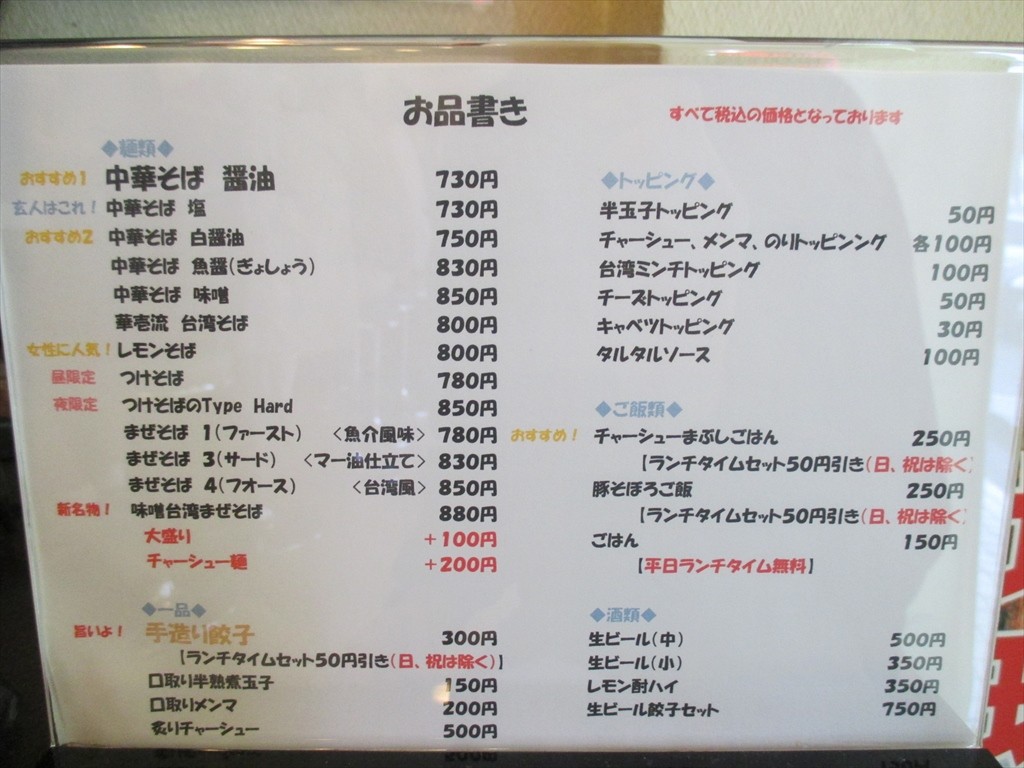 お品書き
すべて税込の価格となっております
◆麺類◆
おすすめ1 中華そば 醤油 730円
玄人はこれ! 中華そば 塩 730円
おすすめ2 中華そば 白醤油 750円
中華そば 魚醤(ぎょしょう) 830円
中華そば 味噌 850円
華壱流 台湾そば 800円
女性に人気! レモンそば 800円
昼限定 つけそば 780円
夜限定 つけそばのType Hard 850円
まぜそば 1(ファースト) <魚介風味> 780円
まぜそば 3(サード) <マー油仕立て> 830円
まぜそば 4(フォース) <台湾風> 850円
新名物! 味噌台湾まぜそば 880円
大盛り +100円
チャーシュー麺 +200円
◆一品◆
旨いよ! 手造り餃子 300円
【ランチタイムセット50円引き(日、祝は除く)】
口取り半熟煮玉子 150円
口取りメンマ 200円
炙りチャーシュー 500円
◆トッピング◆
半玉子トッピング 50円
チャーシュー、メンマ、のりトッピンング 各100円
台湾ミンチトッピング 100円
チーズトッピング 50円
キャベツトッピング 30円
タルタルソース 100円
◆ご飯類◆
おすすめ! チャーシューまぶしごはん 250円
【ランチタイムセット50円引き(日、祝は除く)
豚そぼろご飯 250円
【ランチタイムセット50円引き(日、祝は除く)
ごはん 150円
【平日ランチタイム無料】
◆酒類◆
生ビール(中) 500円
生ビール(小) 350円
レモン酎ハイ 350円
生ビール餃子セット 750円